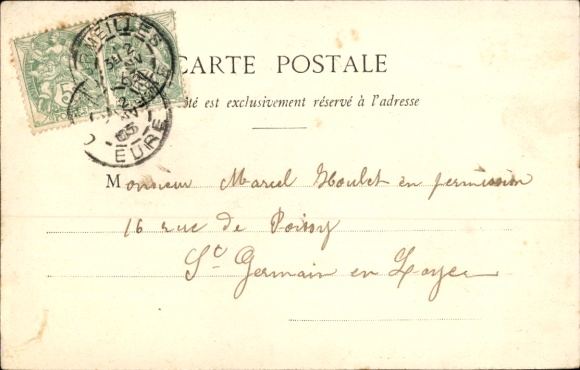 CARTE POSTALE
té est exclusivement réservé à l'adresse
MEILLES
EURE
05
5
Monsieur Marcel Houlet en permission
16 rue de Poissy
St Germain en Laye